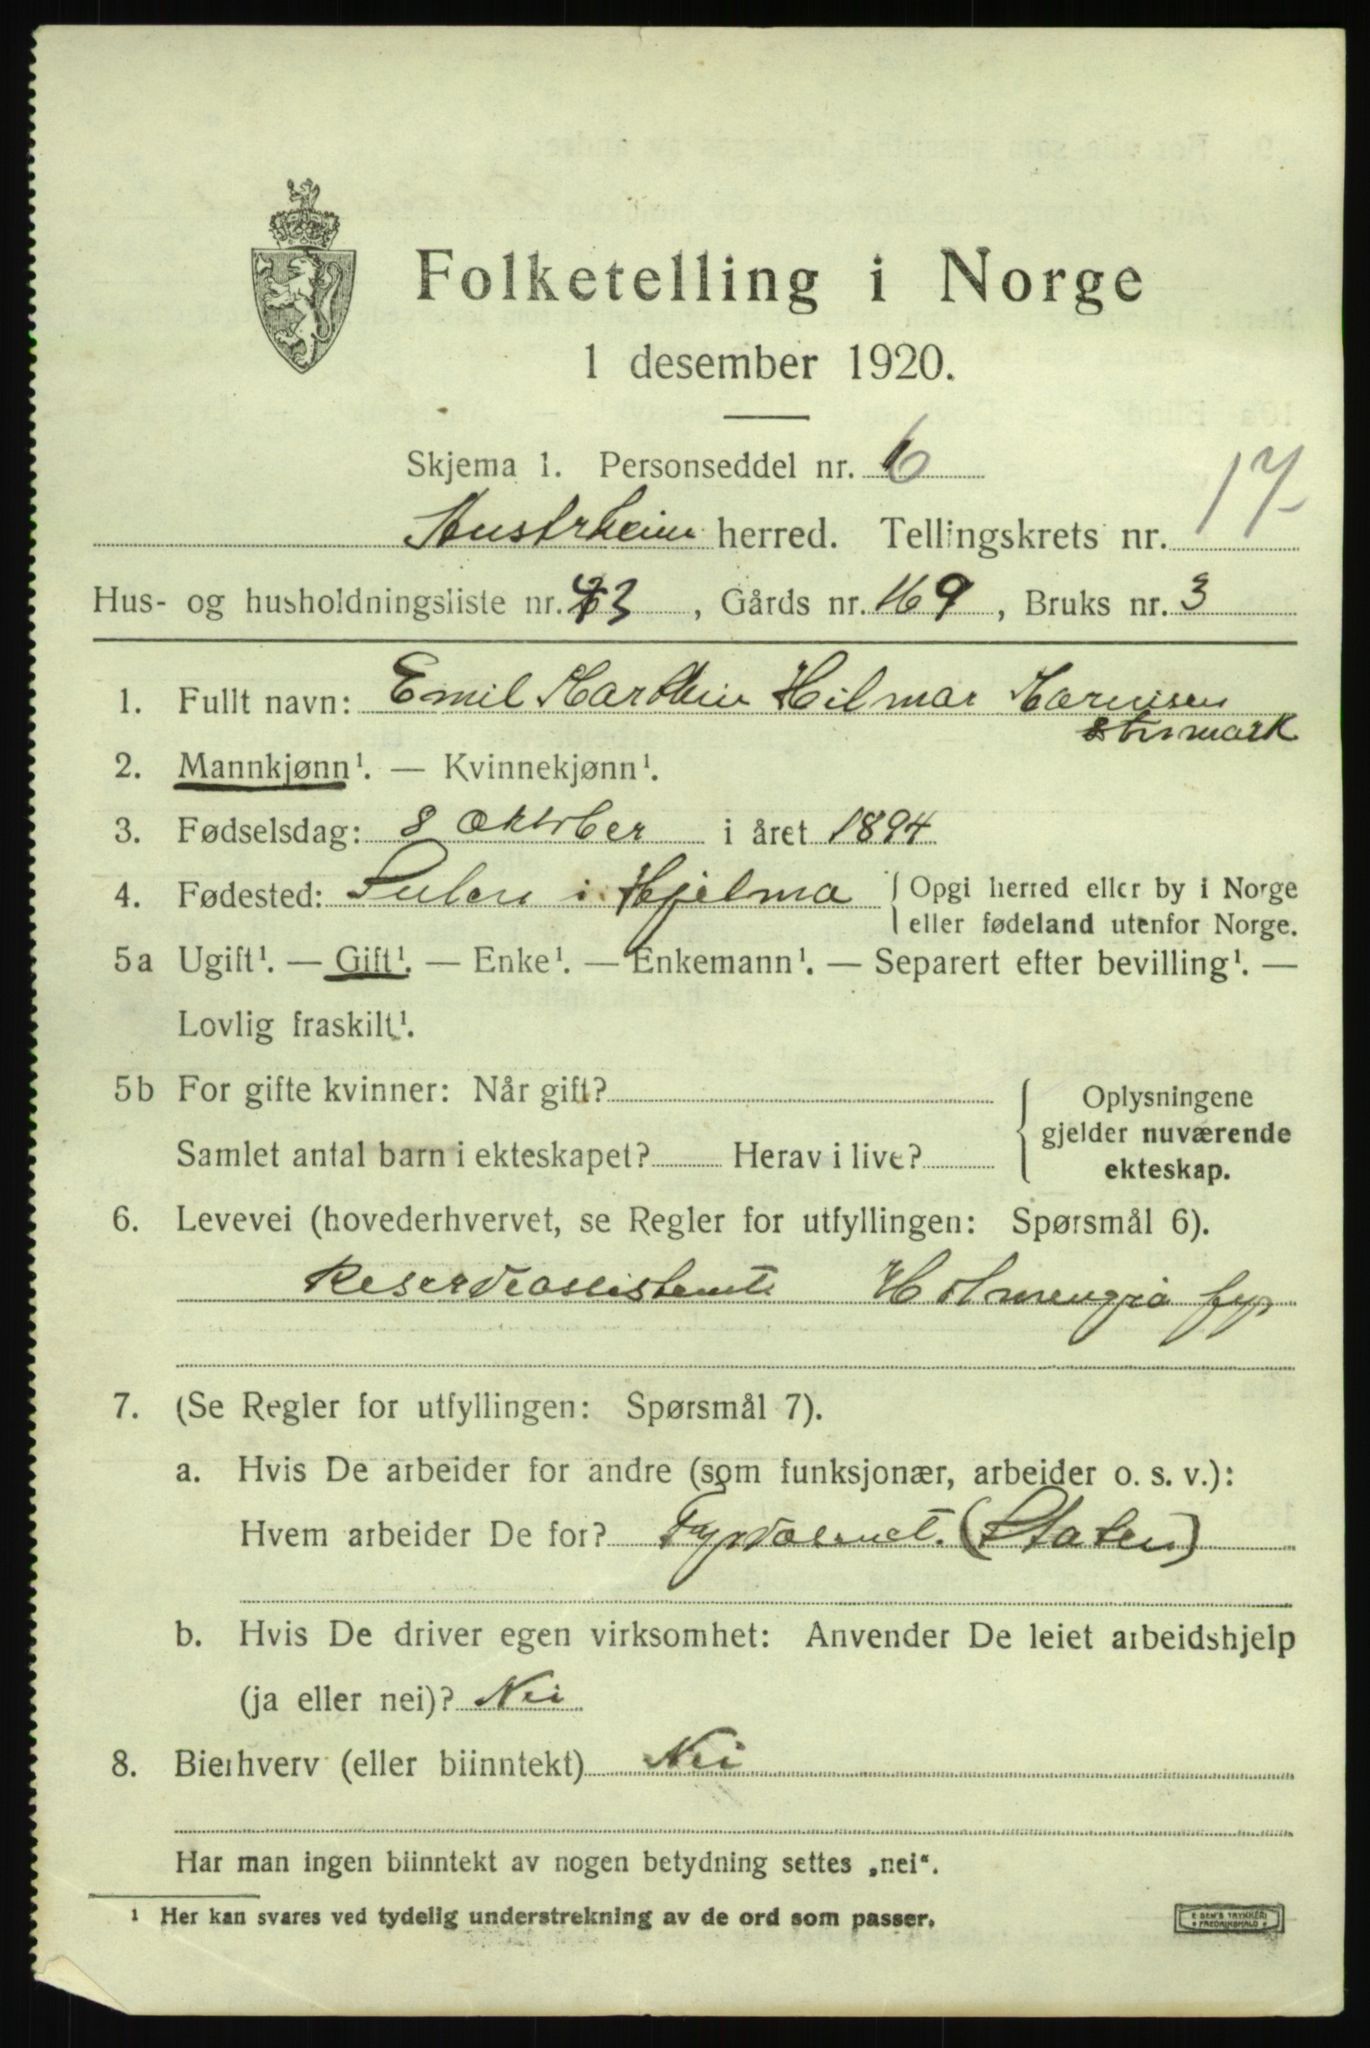 Folketelling i Norge
1 desember 1920.
Skjema 1. Personseddel nr. 6
Austrheim herred. Tellingskrets nr. 17
Hus- og husholdningsliste nr. 3, Gårds nr. 169, Bruks nr. 3
1. Fullt navn: Emil Marthin Hilmar
2. Mannkjønn¹. — Kvinnekjønn¹.
3. Fødselsdag: 8 Oktober i året 1894
4. Fødested: Sulen i Hjelma { Opgi herred eller by i Norge
eller fødeland utenfor Norge.
5a Ugift¹. — Gift¹. — Enke¹. — Enkemann¹. — Separert efter bevilling¹. —
Lovlig fraskilt¹.
5b For gifte kvinner: Når gift?
Samlet antal barn i ekteskapet? Herav i live?
Oplysningene
gjelder nuværende
ekteskap.
6. Levevei (hovederhvervet, se Regler for utfyllingen: Spørsmål 6).
Reserveassistent Holmengrå fyr
7. (Se Regler for utfyllingen: Spørsmål 7).
a. Hvis De arbeider for andre (som funksjonær, arbeider o. s. v.):
Hvem arbeider De for? Fyrvæsnet. (Staten)
b. Hvis De driver egen virksomhet: Anvender De leiet arbeidshjelp
(ja eller nei)? Nei
8. Bierhverv (eller biinntekt) Nei
Har man ingen biinntekt av nogen betydning settes „nei“.
¹ Her kan svares ved tydelig understrekning av de ord som passer.